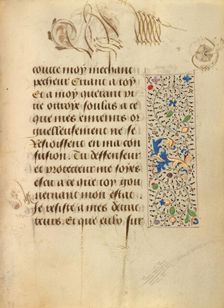 coulce moy mechant
pecheur Estant a toy
Et a moy querant vie
te ottroye soulas a ce
mes ennemis or
guelleusement ne se
resioissent en ma con
fusion. Tu deffenseur
et protecteur me soyes
affin a ce que toy gou
uernant mon estat
Je resiste a mes detrac
teurs. Et que celuy sur